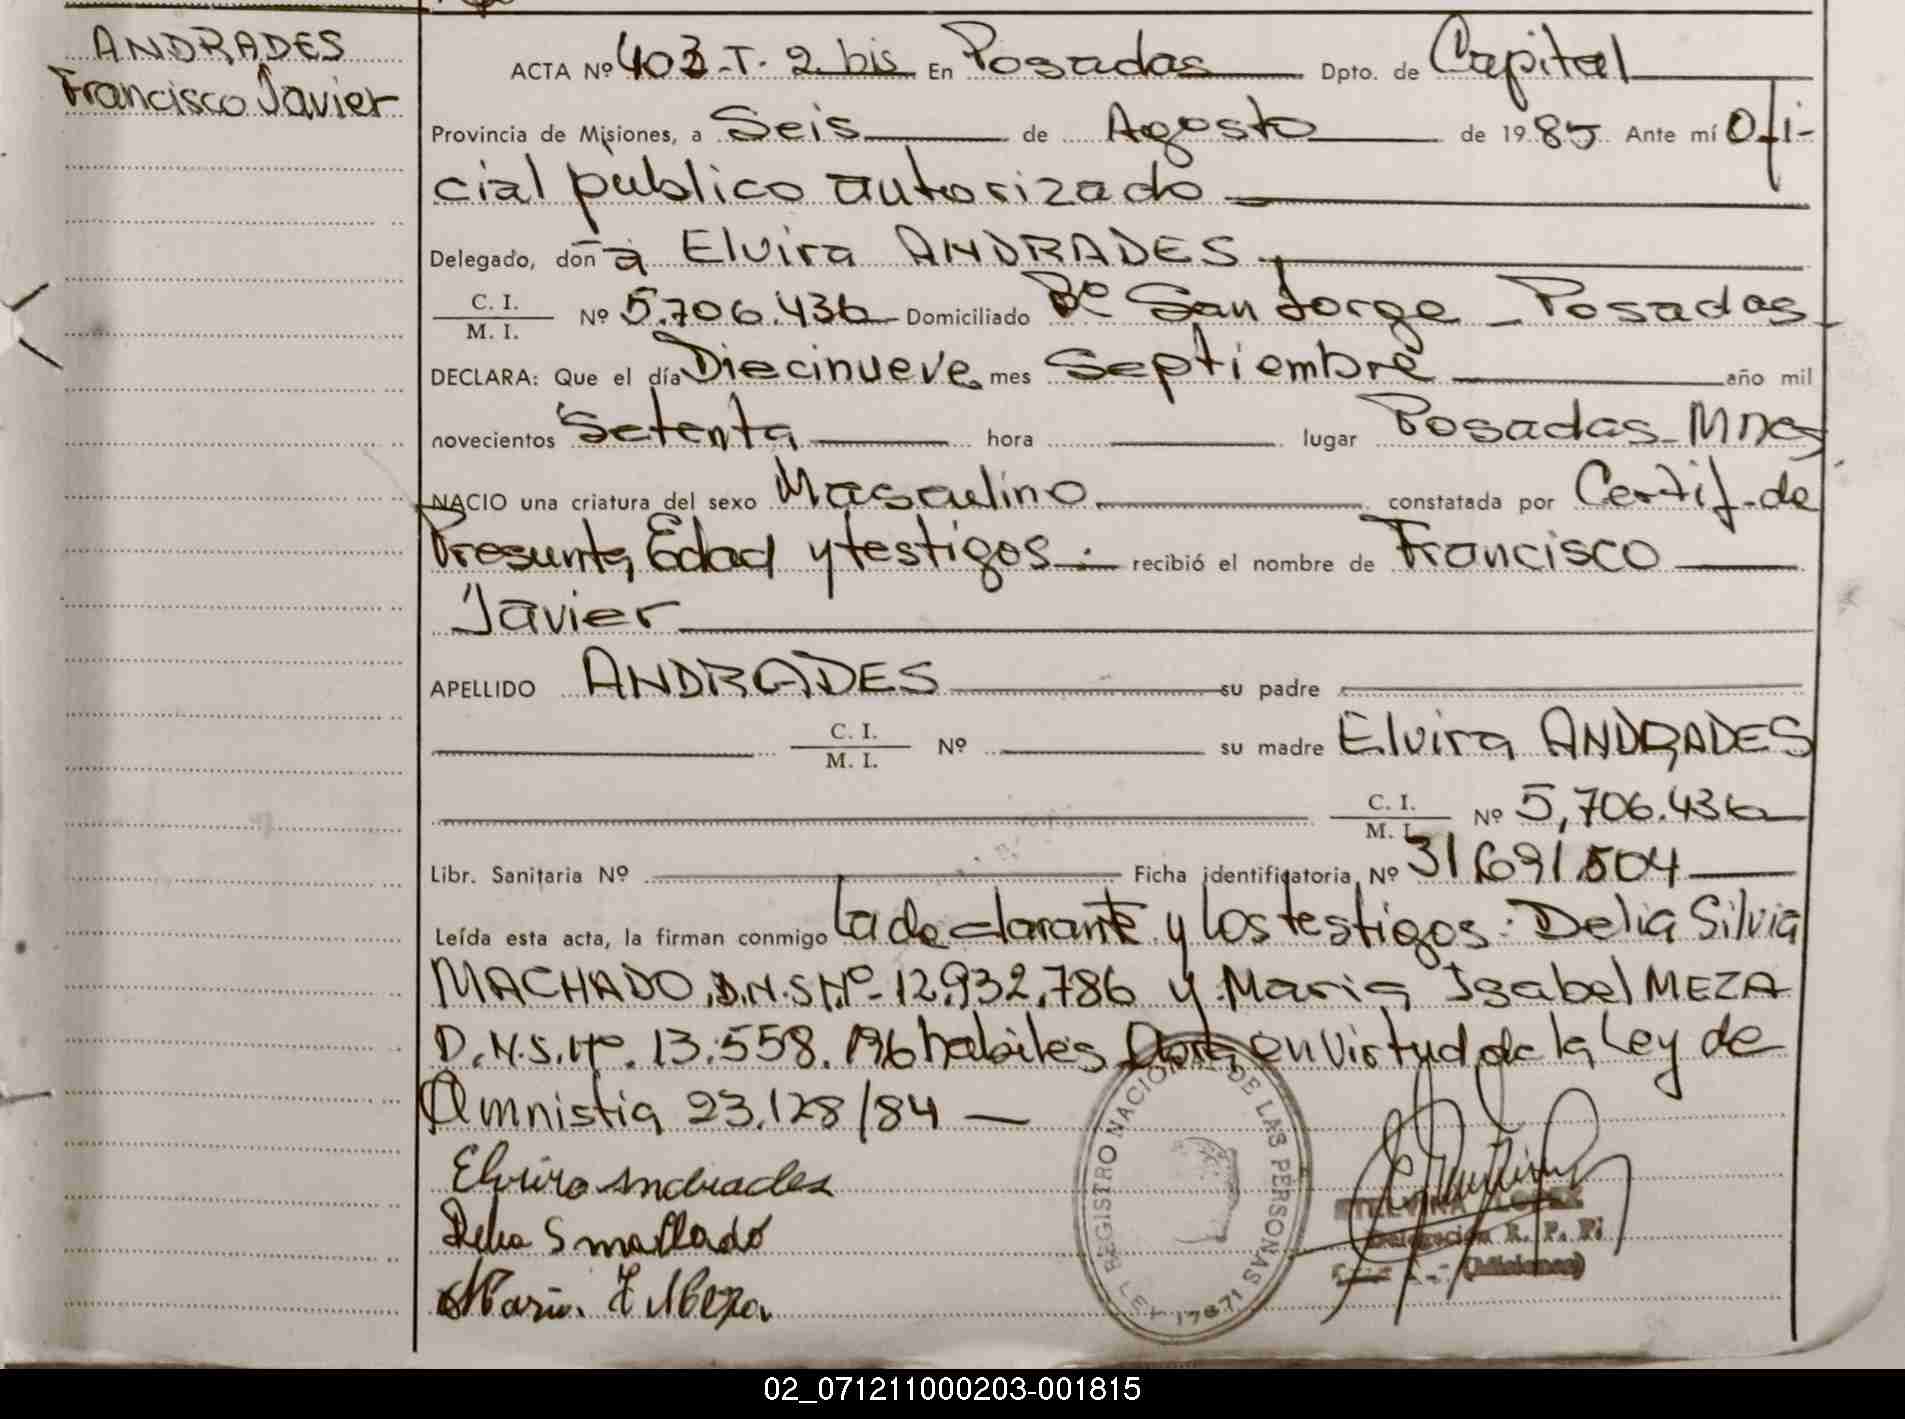 ANDRADES
Francisco Javier
ACTA Nº 403-T. 2 bis En Posadas Dpto. de Capital
Provincia de Misiones, a Seis de Agosto de 1985 Ante mí Ofi-
cial público autorizado
Delegado, don a Elvira ANDRADES
C. I.
M. I. Nº 5.706.436 Domiciliado Bº San Jorge - Posadas
DECLARA: Que el día Diecinueve mes Septiembre año mil
novecientos Setenta hora lugar Posadas - Mnes
NACIO una criatura del sexo Masculino constatada por Certif. de
Presunta Edad y testigos.- recibió el nombre de Francisco
Javier
APELLIDO ANDRADES su padre
C. I.
M. I. Nº su madre Elvira ANDRADES
C. I.
M. I. Nº 5,706.436
Libr. Sanitaria Nº Ficha identificatoria Nº 31.691.504
Leída esta acta, la firman conmigo La declarante y los testigos: Delia Silvia
MACHADO, D.N.S.Nº- 12.932.786 y Maria Isabel MEZA
D.N.S.Nº. 13.558.196 habiles en virtud de la Ley de
Amnistia 23.128/84 —
Elvira Andrades
Delia S Machado
Maria I Meza
REGISTRO NACIONAL DE LAS PERSONAS
LEY 17671
ETELVINA LOPEZ
Delegación R. P. P.
(Misiones)
02_071211000203-001815